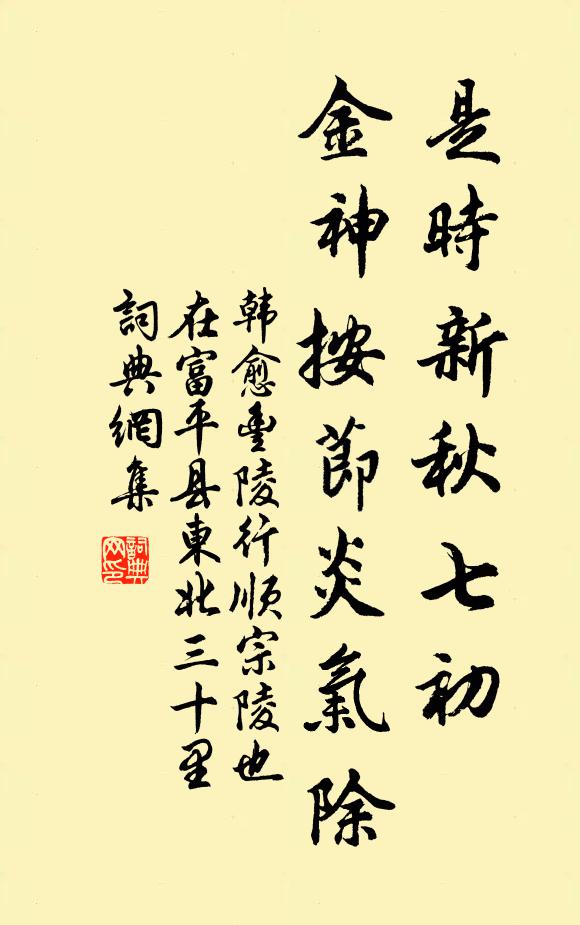 是時新秋七初
金神按節炎氣除
韩愈豊陵行顺宗陵也
在富平县東北三十里
詞典網集
詞典
网印